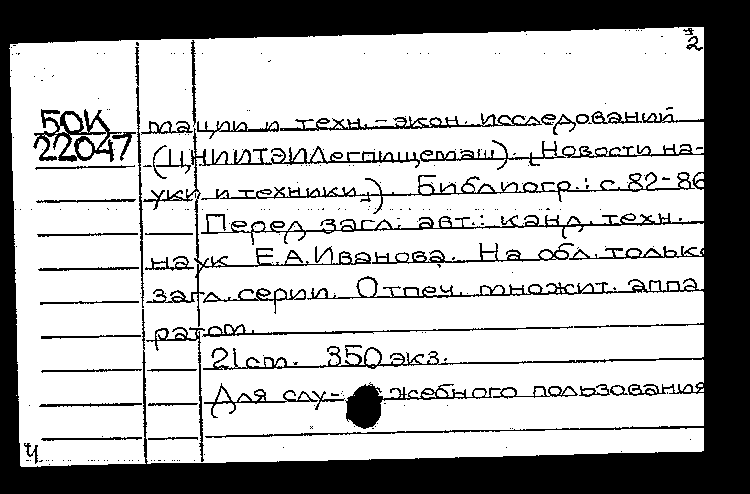 2
50К
22047
тации и техн.-экон. исследований
(ЦНИИТЭИЛегпищемаш). [Новости на-
уки и техники]). Библиогр.: с. 82-86
Перед загл. авт.: канд. техн.
наук Е.А.Иванова. На обл. только
загл. серии. Отпеч. множит. аппа
ратом.
21 cm. 350 экз.
Для слу- жебного пользования
ч